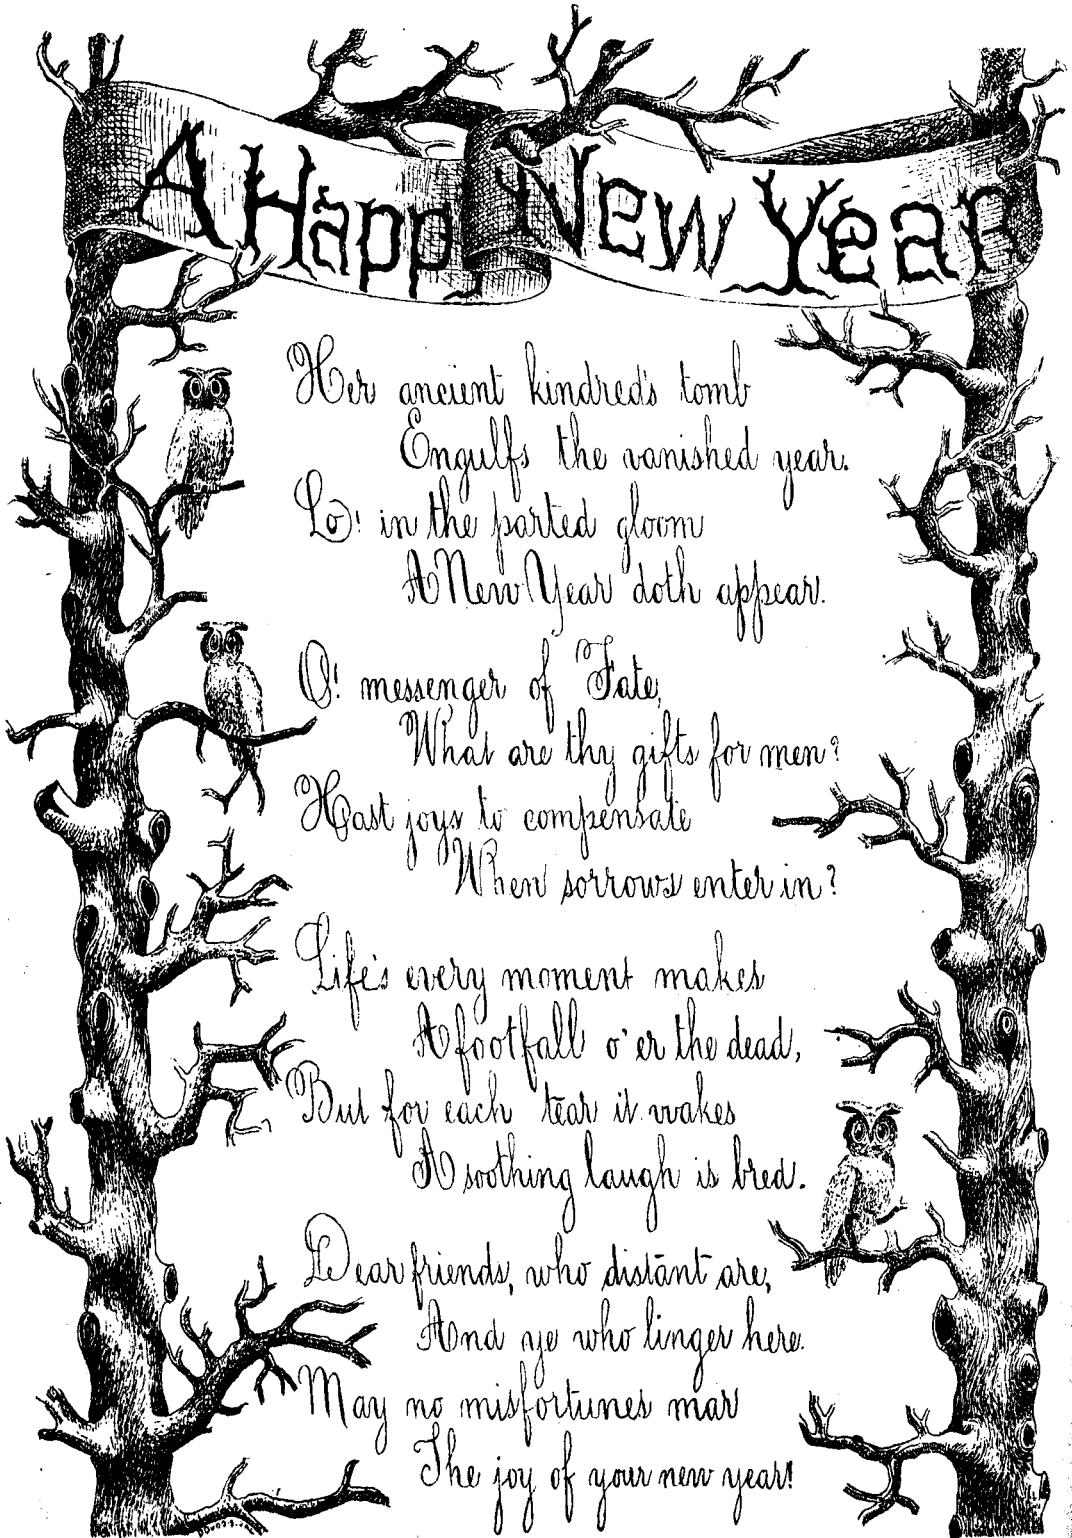 A Happy New Year
Her ancient kindred's tomb
Engulfs the vanished year.
Lo! in the parted gloom
A New Year doth appear.
O! messenger of Fate,
What are thy gifts for men?
Hast joys to compensate
When sorrows enter in?
Life's every moment makes
A footfall o'er the dead,
But for each tear it wakes
A soothing laugh is bred.
Dear friends, who distant are,
And ye who linger here.
May no misfortunes mar
The joy of your new year!